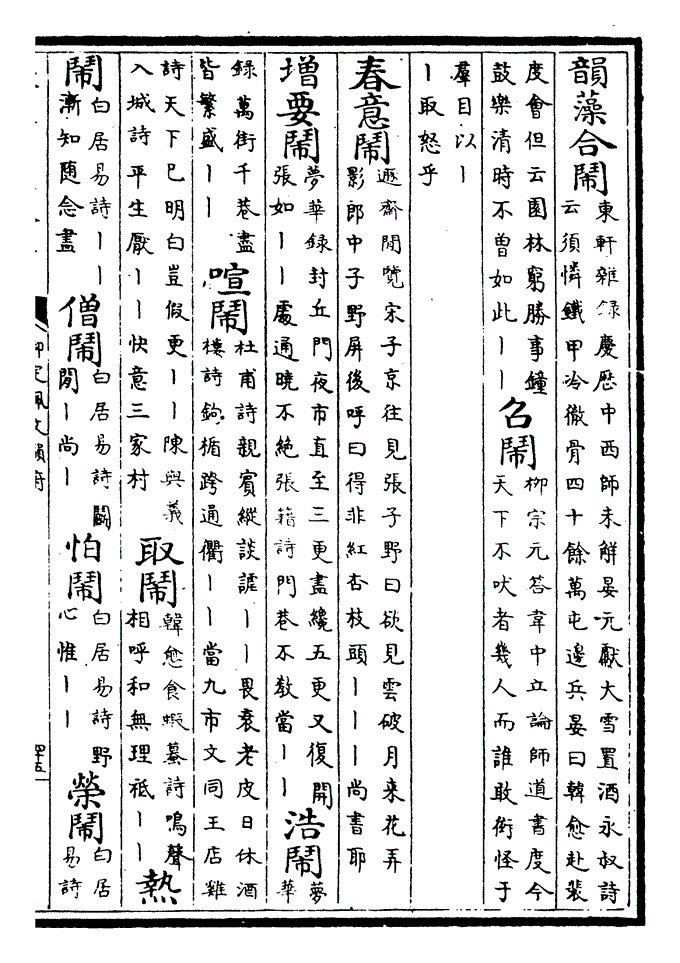 韻藻合鬧
東軒雜錄慶歷中西師未解晏元獻大雪置酒永叔詩
云須憐鐵甲冷徹骨四十餘萬屯邊兵晏曰韓愈赴裴
度會但云園林窮勝事鐘
鼓樂清時不曾如此丨丨
召鬧
柳宗元答韋中立論師道書度今
天下不吠者幾人而誰敢衒怪于
羣目以丨
丨取怒乎
春意鬧
遯齋閒覽宋子京往見張子野曰欲見雲破月来花弄
影郎中子野屏後呼曰得非紅杏枝頭丨丨丨尚書耶
增要鬧
夢華錄封丘門夜市直至三更盡纔五更又復開
張如丨丨處通曉不絶張籍詩門巷不教當丨丨
浩鬧
夢華
錄萬街千巷盡
皆繁盛丨丨
喧鬧
杜甫詩親賓縱談謔丨丨畏衰老皮日休酒
樓詩鉤楯跨通衢丨丨當九市文同王店雞
詩天下巳明白豈假更丨丨陳與義
入城詩平生厭丨丨快意三家村
取鬧
韓愈食蝦蟇詩鳴聲
相呼和無理祗丨丨
熱鬧
白居易詩丨丨
漸知随念盡
僧鬧
白居易詩鬬
閒丨尚丨
怕鬧
白居易詩野
心惟丨丨
榮鬧
白居
易詩
四十五